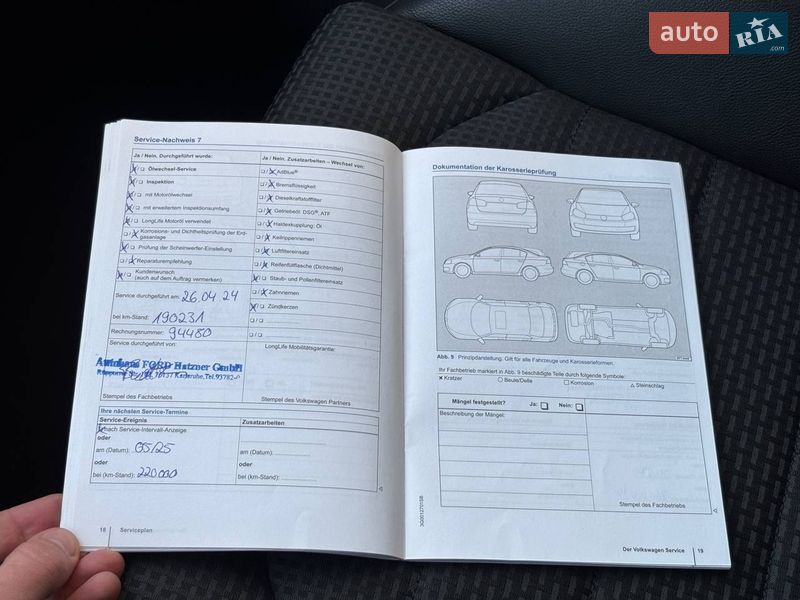 auto RIA
.com
Service-Nachweis 7
Ja / Nein. Durchgeführt wurde:
Ölwechsel-Service
Inspektion
mit Motorölwechsel
mit erweitertem Inspektionsumfang
LongLife Motoröl verwendet
Korrosions- und Dichtheitsprüfung der Erd-
gasanlage
Prüfung der Scheinwerfer-Einstellung
Reparaturempfehlung
Kundenwunsch
(auch auf dem Auftrag vermerken)
Service durchgeführt am: 26.04 24
bei km-Stand: 190231
Rechnungsnummer: 94480
Service durchgeführt von:
Autohaus FORD Hutzner GmbH
Karlsruhe, Tel.
Stempel des Fachbetriebs
Ja / Nein. Zusatzarbeiten – Wechsel von:
AdBlue®
Bremsflüssigkeit
Dieselkraftstofffilter
Getriebeöl: DSG®, ATF
Haldexkupplung: Öl
Keilrippenriemen
Luftfiltereinsatz
Reifenfüllflasche (Dichtmittel)
Staub- und Pollenfiltereinsatz
Zahnriemen
Zündkerzen
LongLife Mobilitätsgarantie:
Stempel des Volkswagen Partners
Ihre nächsten Service-Termine
Service-Ereignis
Zusatzarbeiten
nach Service-Intervall-Anzeige
oder
am (Datum): 05/25
am (Datum):
oder
oder
bei (km-Stand): 220000
bei (km-Stand):
18 Serviceplan
Dokumentation der Karosserieprüfung
Abb. 9 Prinzipdarstellung: Gilt für alle Fahrzeuge und Karosserieformen.
Ihr Fachbetrieb markiert in Abb. 9 beschädigte Teile durch folgende Symbole:
× Kratzer ○ Beule/Delle □ Korrosion △ Steinschlag
Mängel festgestellt? Ja: Nein:
Beschreibung der Mängel:
Stempel des Fachbetriebs
Der Volkswagen Service 19